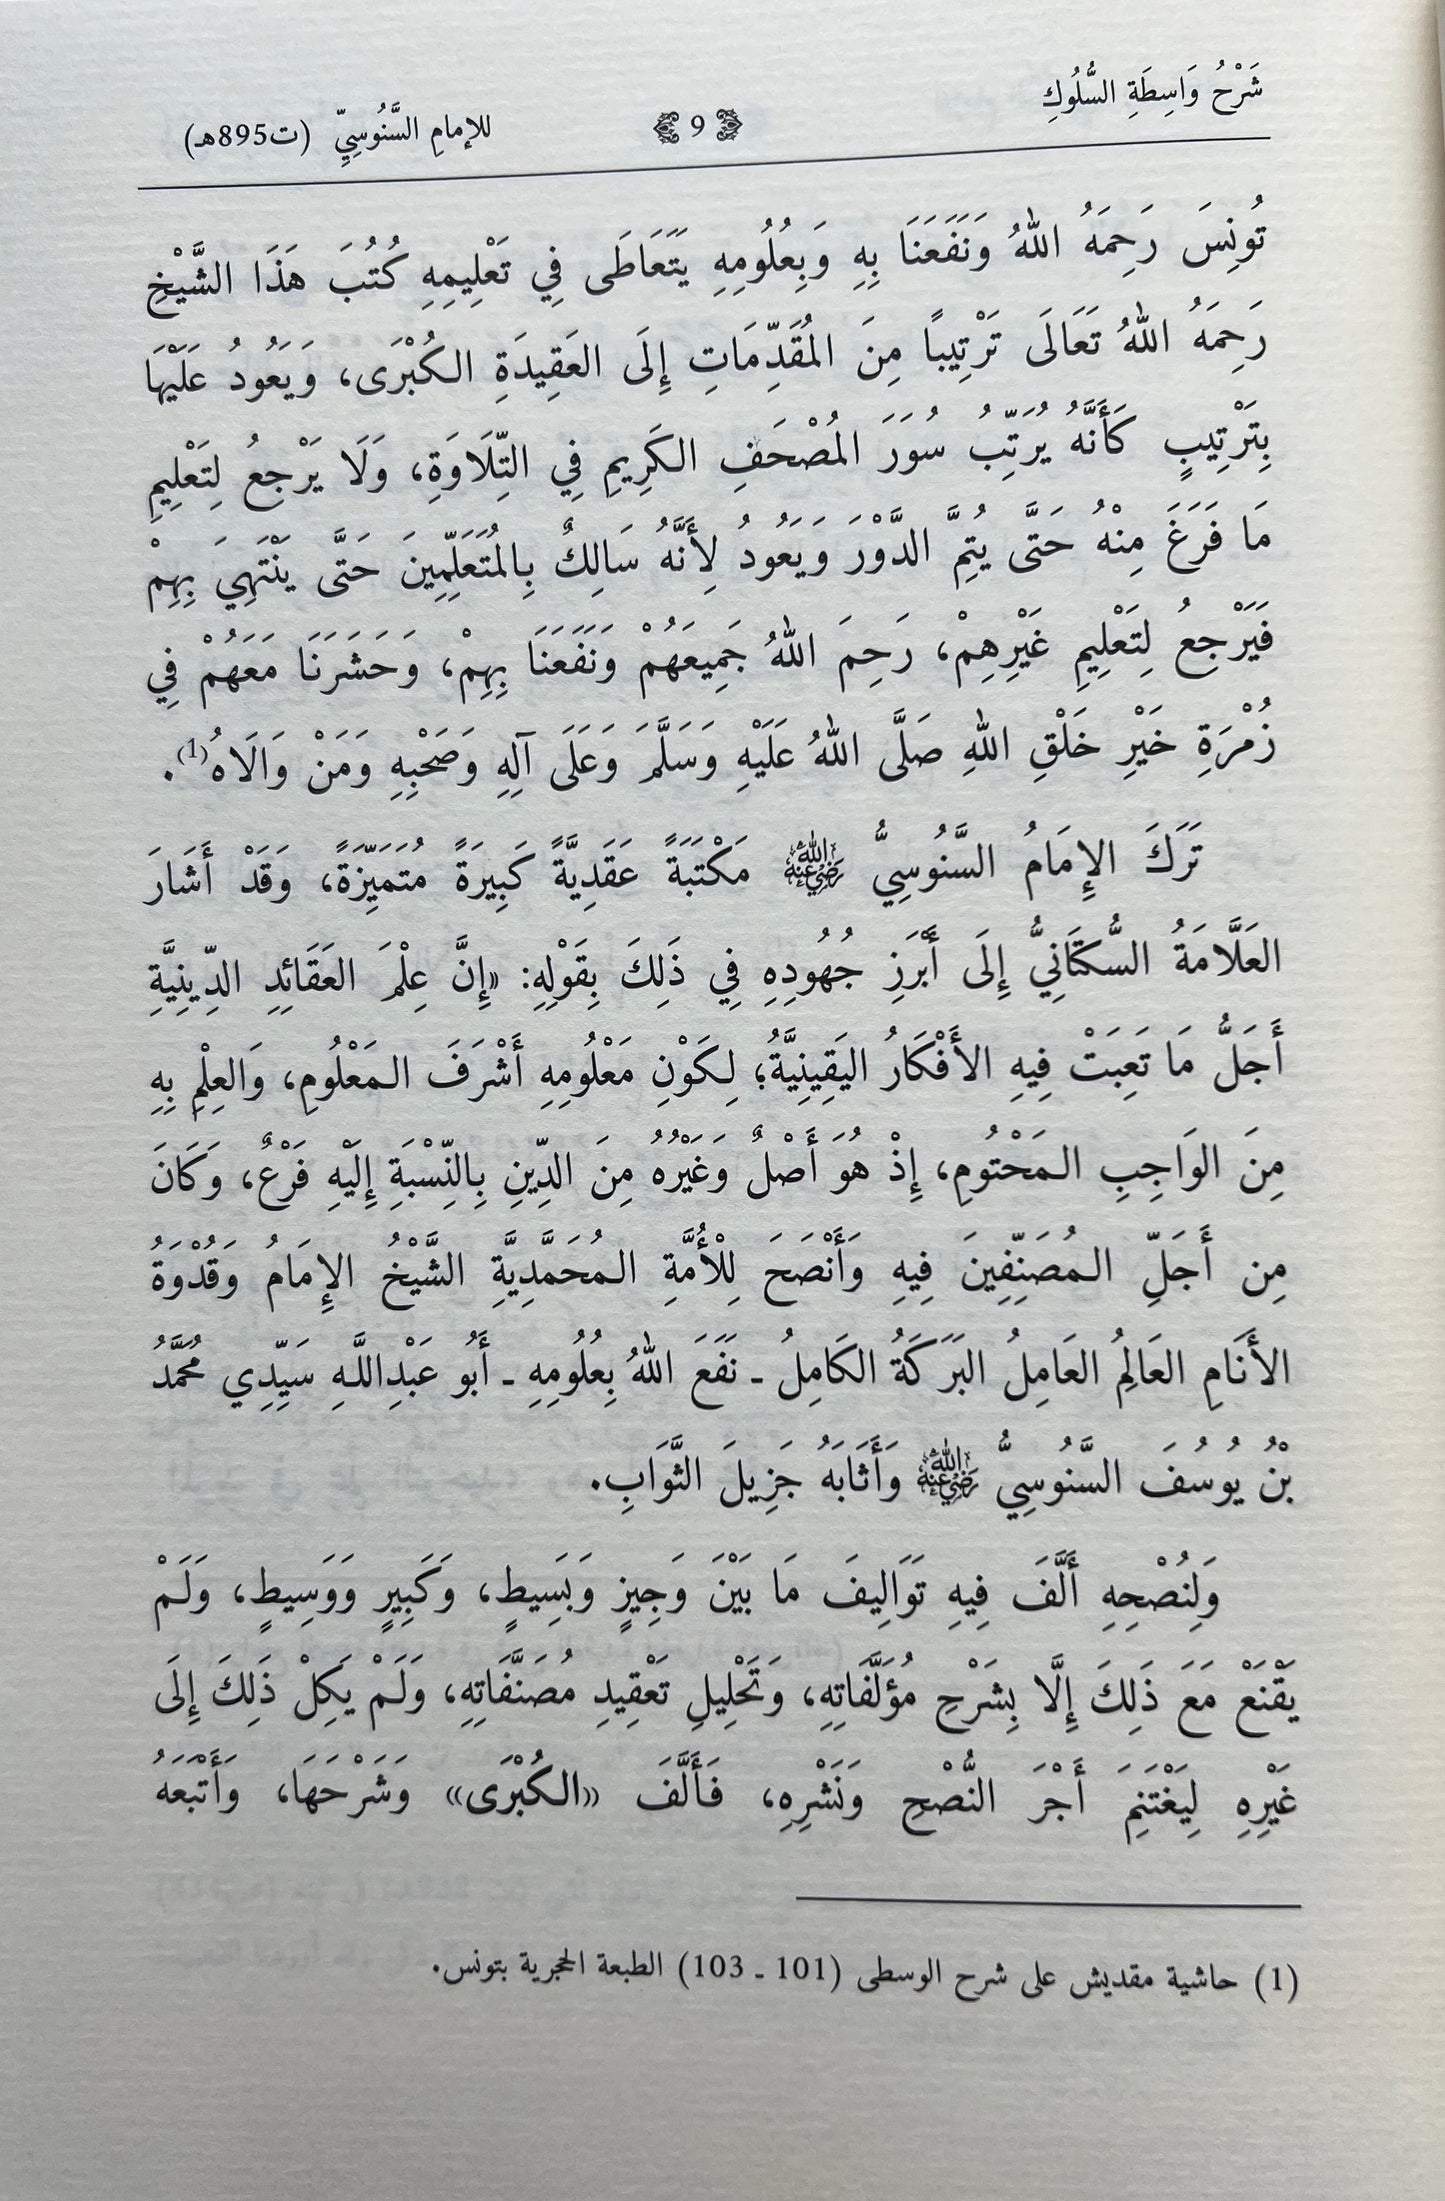 شَرْحُ وَاسِطَةِ السُّلُوكِ
9
للإمامِ السَّنُوسِيِّ (ت895هـ)
تُونِسَ رَحِمَهُ اللهُ وَنَفَعَنَا بِهِ وَبِعُلُومِهِ يَتَعَاطَى فِي تَعْلِيمِهِ كُتُبَ هَذَا الشَّيْخِ
رَحِمَهُ اللهُ تَعَالَى تَرْتِيباً مِنَ المُقَدِّمَاتِ إِلَى العَقِيدَةِ الكُبْرَى، وَيَعُودُ عَلَيْهَا
بِتَرْتِيبٍ كَأَنَّهُ يُرَتِّبُ سُوَرَ المُصْحَفِ الكَرِيمِ فِي التِّلَاوَةِ، وَلَا يَرْجِعُ لِتَعْلِيمِ
مَا فَرَغَ مِنْهُ حَتَّى يُتِمَّ الدَّوْرَ وَيَعُودُ لِأَنَّهُ سَالِكٌ بِالمُتَعَلِّمِينَ حَتَّى يَنْتَهِيَ بِهِمْ
فَيَرْجِعُ لِتَعْلِيمِ غَيْرِهِمْ، رَحِمَ اللهُ جَمِيعَهُمْ وَنَفَعَنَا بِهِمْ، وَحَشَرَنَا مَعَهُمْ فِي
زُمْرَةِ خَيْرِ خَلْقِ اللهِ صَلَّى اللهُ عَلَيْهِ وَسَلَّمَ وَعَلَى آلِهِ وَصَحْبِهِ وَمَنْ وَالَاهُ(1).
تَرَكَ الإِمَامُ السَّنُوسِيُّ رَضِيَ اللهُ عَنْهُ مَكْتَبَةً عَقَدِيَّةً كَبِيرَةً مُتَمَيِّزَةً، وَقَدْ أَشَارَ
العَلَّامَةُ السُّكْتَانِيُّ إِلَى أَبْرَزِ جُهُودِهِ فِي ذَلِكَ بِقَوْلِهِ: «إِنَّ عِلْمَ العَقَائِدِ الدِّينِيَّةِ
أَجَلُّ مَا تَعِبَتْ فِيهِ الأَفْكَارُ اليَقِينِيَّةُ؛ لِكَوْنِ مَعْلُومِهِ أَشْرَفَ المَعْلُومِ، وَالعِلْمِ بِهِ
مِنَ الوَاجِبِ المَحْتُومِ، إِذْ هُوَ أَصْلٌ وَغَيْرُهُ مِنَ الدِّينِ بِالنِّسْبَةِ إِلَيْهِ فَرْعٌ، وَكَانَ
مِن أَجَلِّ المُصَنِّفِينَ فِيهِ وَأَنْصَحَ لِلْأُمَّةِ المُحَمَّدِيَّةِ الشَّيْخُ الإِمَامُ وَقُدْوَةُ
الأَنَامِ العَالِمُ العَامِلُ البَرَكَةُ الكَامِلُ ـ نَفَعَ اللهُ بِعُلُومِهِ ـ أَبُو عَبْدِاللَّهِ سَيِّدِي مُحَمَّدُ
بْنُ يُوسُفَ السَّنُوسِيُّ رَضِيَ اللهُ عَنْهُ وَأَثَابَهُ جَزِيلَ الثَّوَابِ.
وَلِنُصْحِهِ أَلَّفَ فِيهِ تَوَالِيفَ مَا بَيْنَ وَجِيزٍ وَبَسِيطٍ، وَكَبِيرٍ وَوَسِيطٍ، وَلَمْ
يَقْنَعْ مَعَ ذَلِكَ إِلَّا بِشَرْحِ مُؤَلَّفَاتِهِ، وَتَحْلِيلِ تَعْقِيدِ مُصَنَّفَاتِهِ، وَلَمْ يَكِلْ ذَلِكَ إِلَى
غَيْرِهِ لِيَغْتَنِمَ أَجْرَ النُّصْحِ وَنَشْرِهِ، فَأَلَّفَ «الكُبْرَى» وَشَرْحَهَا، وَأَتْبَعَهُ
(1) حاشية مقديش على شرح الوسطى (101 ـ 103) الطبعة الحجرية بتونس.